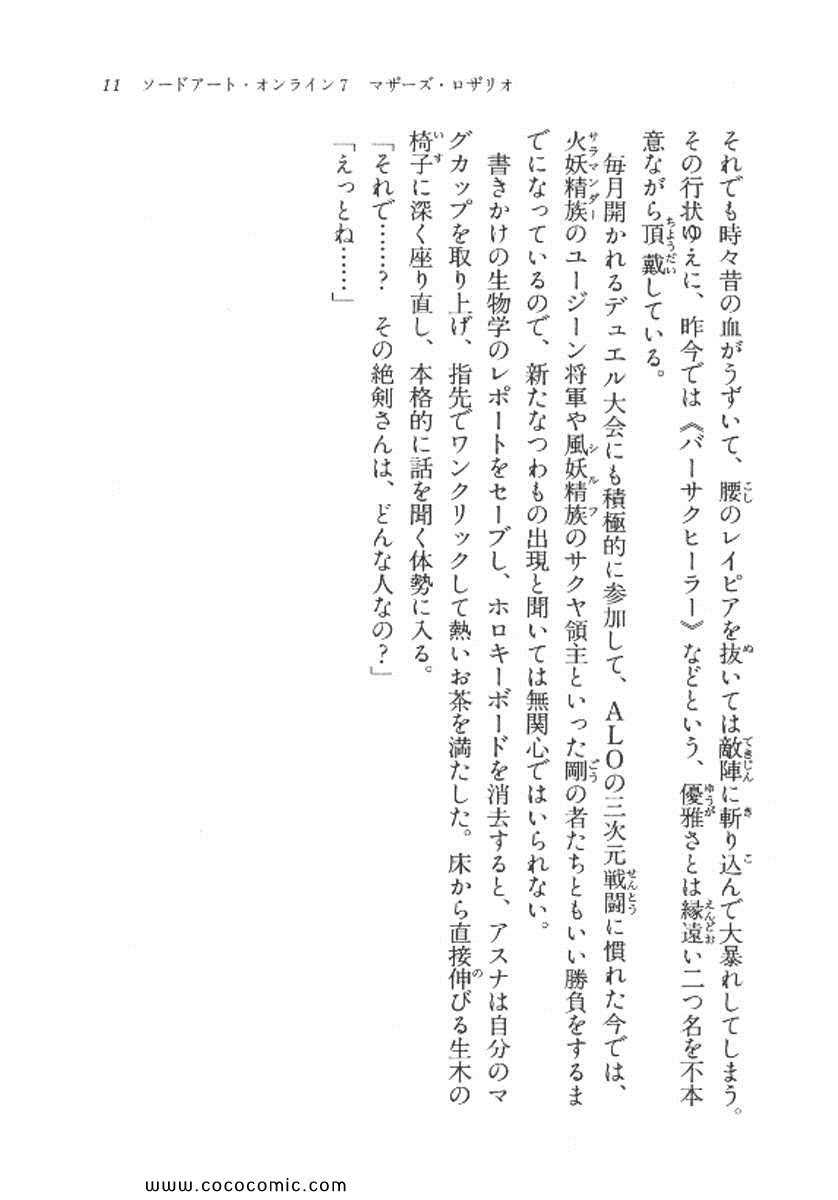 11　ソードアート・オンライン7　マザーズ・ロザリオ
それでも時々昔の血がうずいて、腰のレイピアを抜いては敵陣に斬り込んで大暴れしてしまう。
その行状ゆえに、昨今では《バーサクヒーラー》などという、優雅さとは縁遠い二つ名を不本
意ながら頂戴している。
　毎月開かれるデュエル大会にも積極的に参加して、ALOの三次元戦闘に慣れた今では、
火妖精族のユージーン将軍や風妖精族のサクヤ領主といった剛の者たちともいい勝負をするま
でになっているので、新たなつわもの出現と聞いては無関心ではいられない。
　書きかけの生物学のレポートをセーブし、ホロキーボードを消去すると、アスナは自分のマ
グカップを取り上げ、指先でワンクリックして熱いお茶を満たした。床から直接伸びる生木の
椅子に深く座り直し、本格的に話を聞く体勢に入る。
「それで……？　その絶剣さんは、どんな人なの？」
「えっとね……」
www.cococomic.com